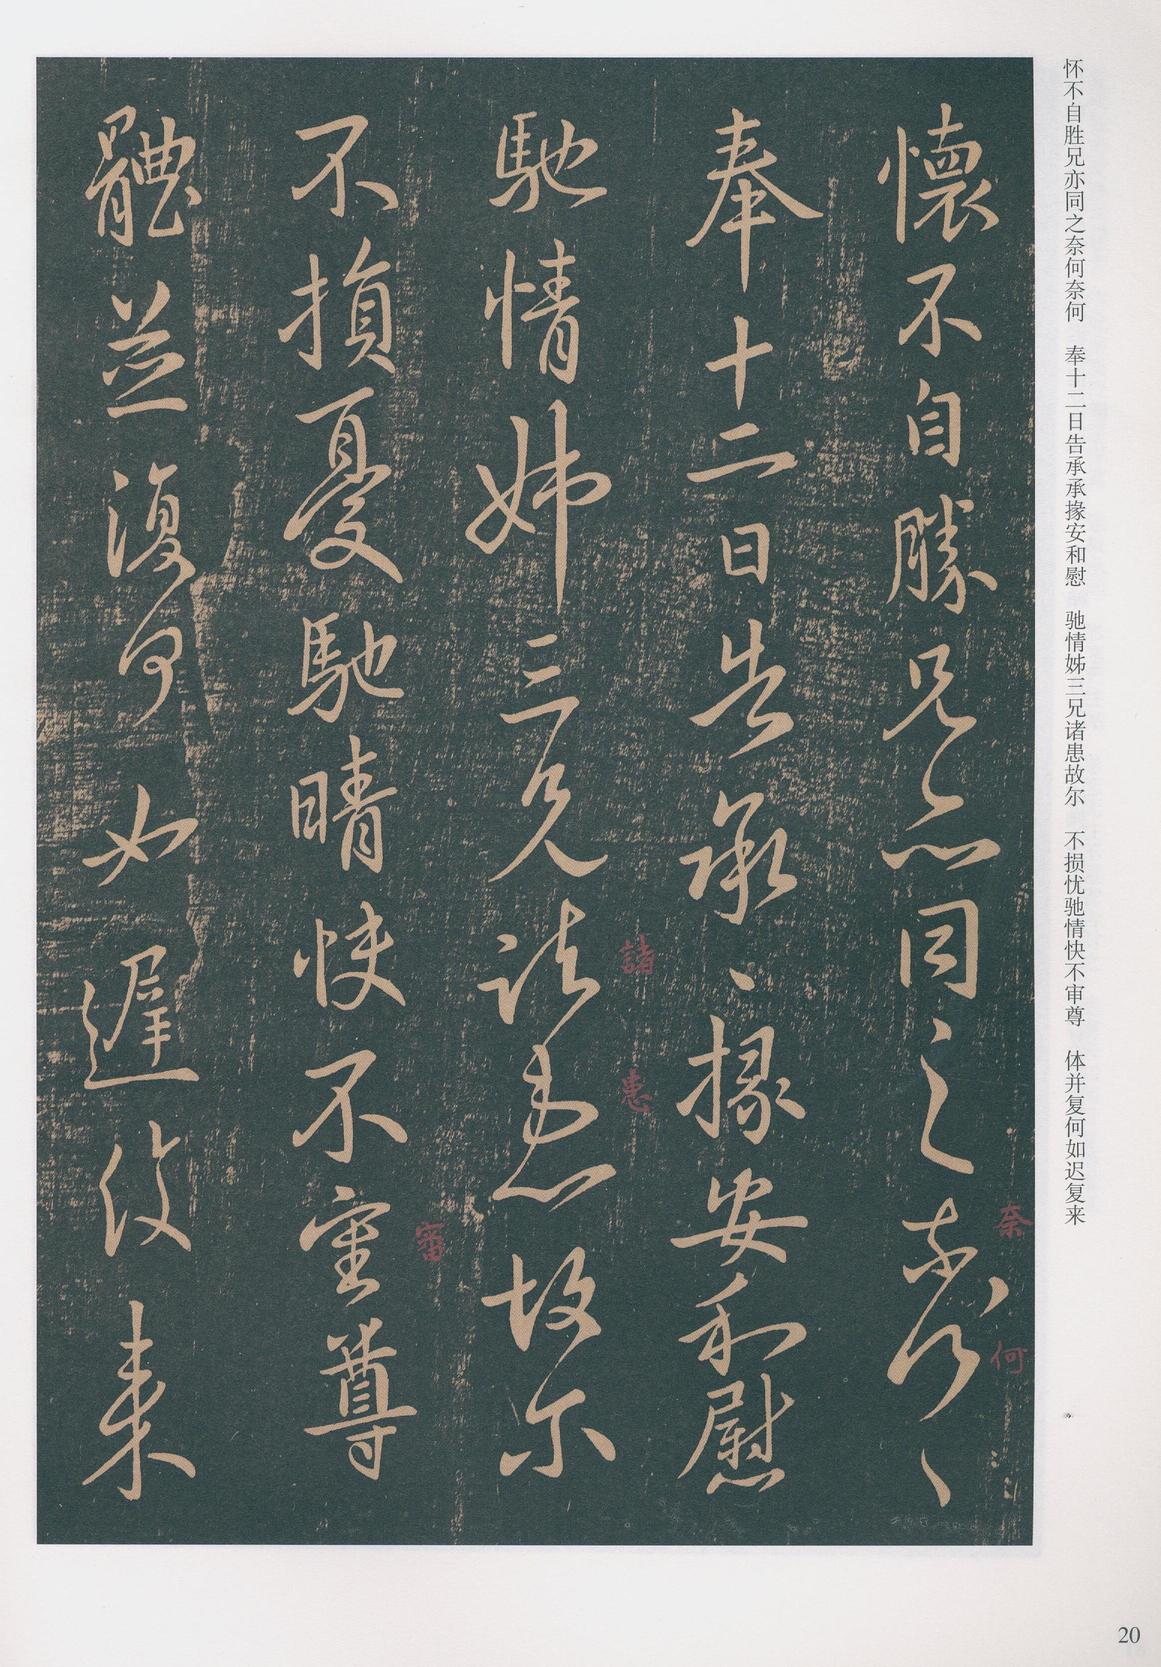 怀不自胜兄亦同之奈何奈何　奉十二日告承承掾安和慰　驰情姊三兄诸患故尔　不损忧驰情快不审尊　体并复何如迟复来
懷不自勝兄亦同之奈何〻
奉十二日告承〻掾安和慰
馳情姊三兄諸患故尔
不損憂馳晴快不審尊
體並復何如遲復来
奈
何
諸
患
審
20